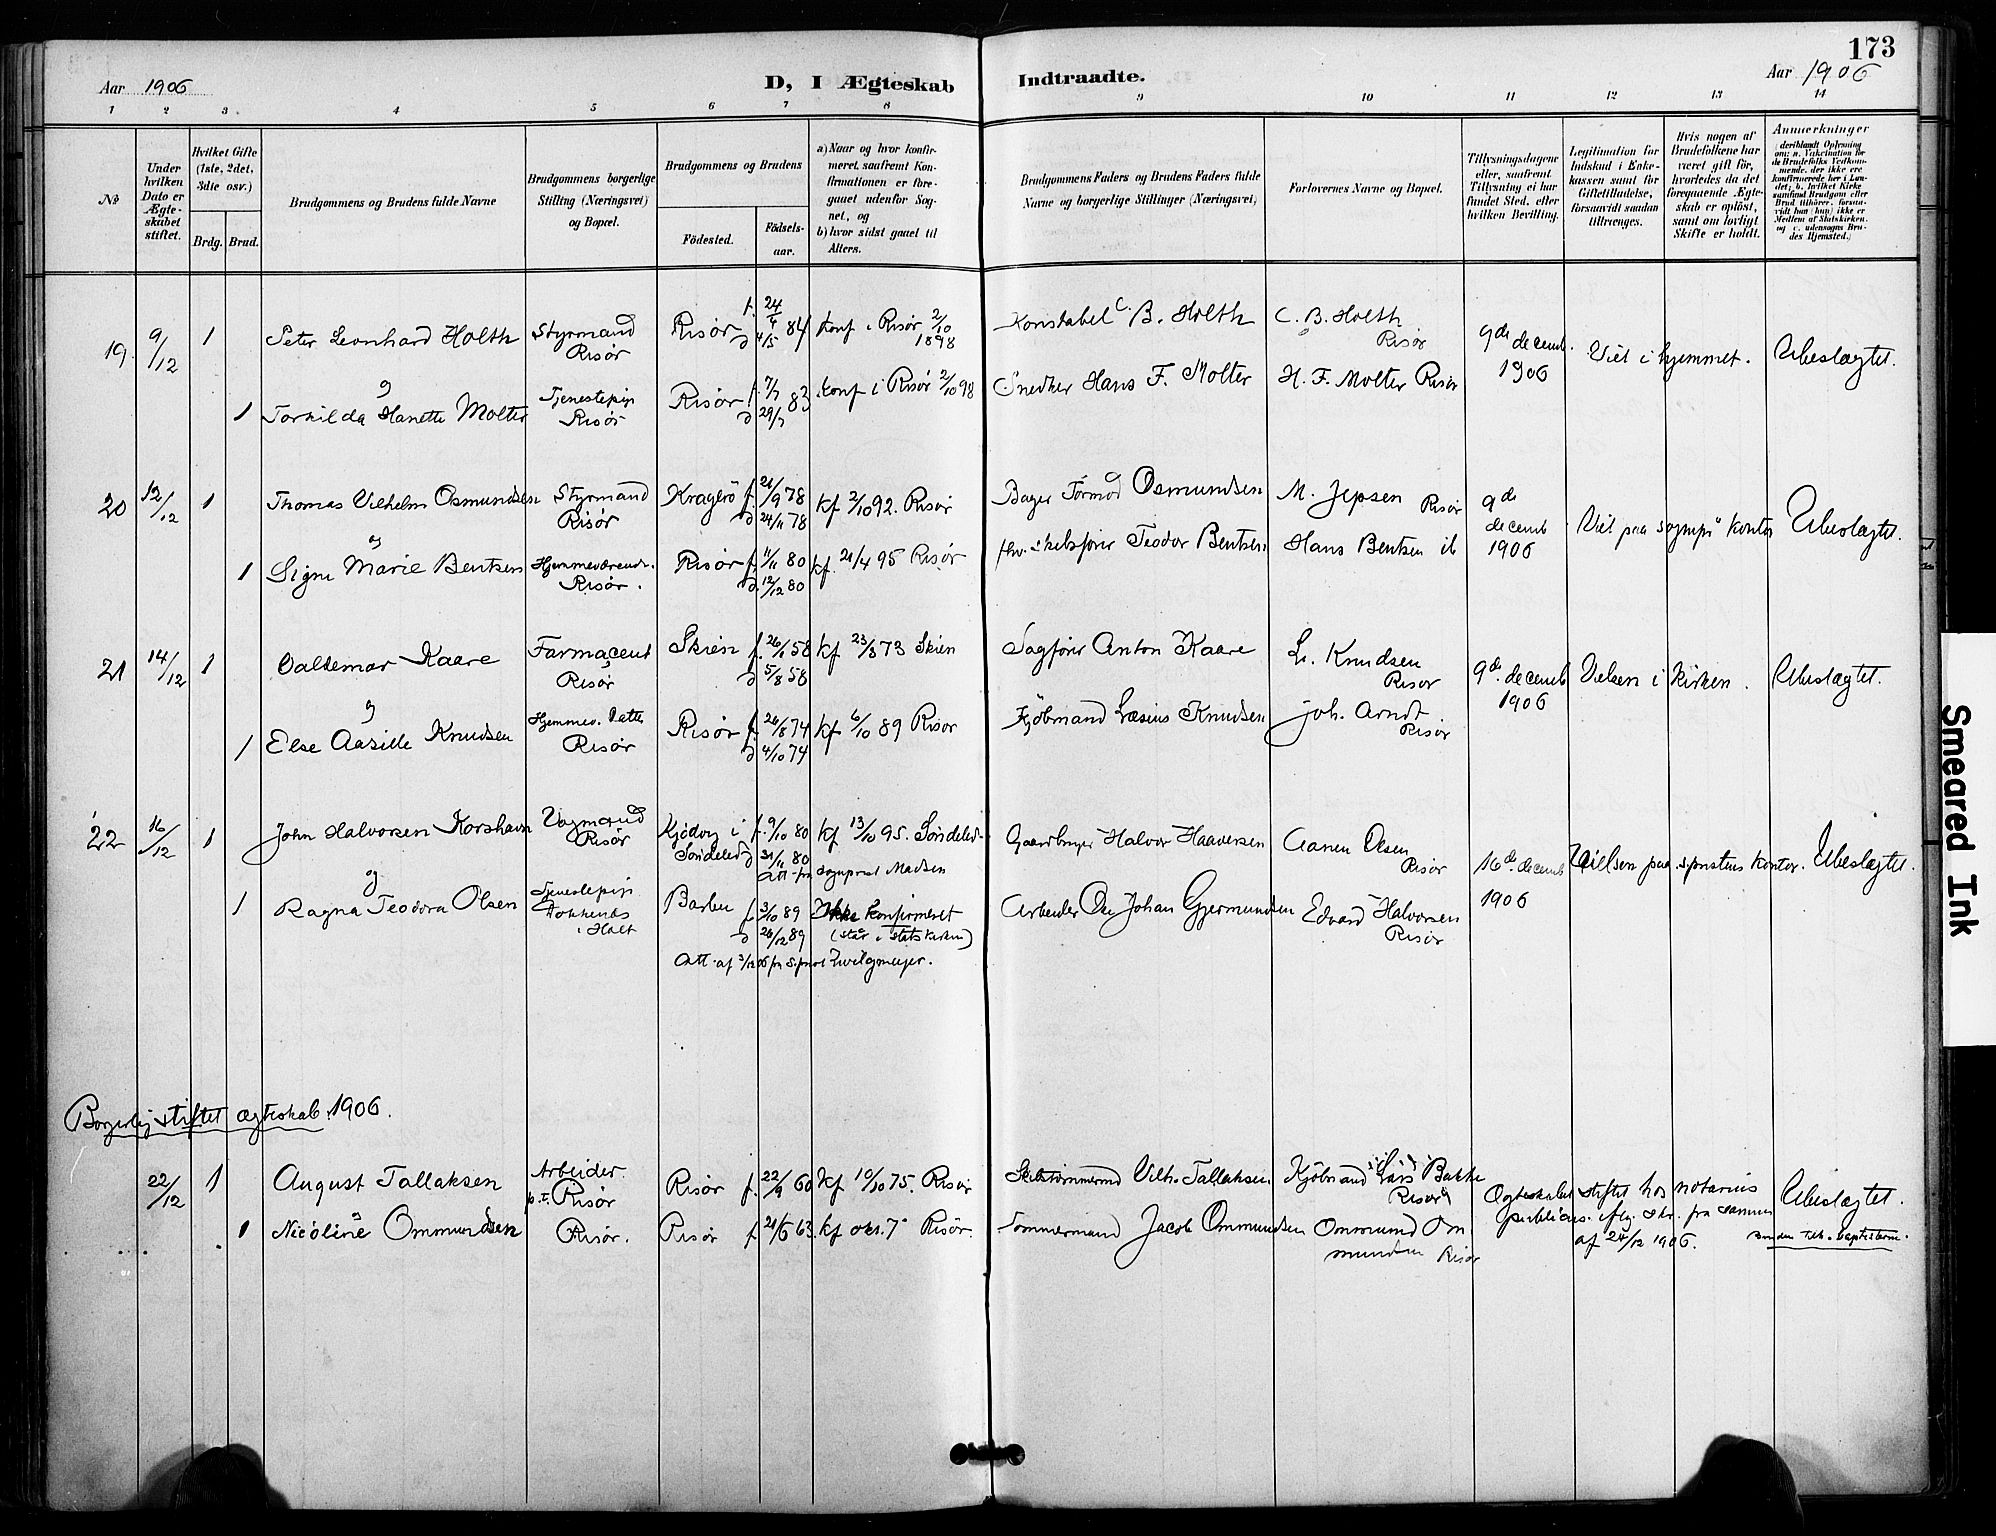 173
Aar 1906
D, I Ægteskab Indtraadte.
Aar 1906
1 2 3 4 5 6 7 8 9 10 11 12 13 14
No
Under hvilken Dato er Ægteskabet stiftet.
Hvilket Gifte (1ste, 2det, 3die osv.)
Brdg. Brud.
Brudgommens og Brudens fulde Navne
Brudgommens borgerlige Stilling (Næringsvei) og Bopæl.
Brudgommens og Brudens
Födested. Födsels-aar.
a) Naar og hvor konfirmeret, saafremt Konfirmationen er foregaaet udenfor Sognet, og
b) hvor sidst gaaet til Alters.
Brudgommens Faders og Brudens Faders fulde Navne og borgerlige Stillinger (Næringsvei)
Forlovernes Navne og Bopæl.
Tillysningsdagene eller, saafremt Tillysning ei har fundet Sted, efter hvilken Bevilling.
Legitimation for Indskud i Enkekassen samt for Giftetilladelse, forsaavidt saadan tiltrænges.
Hvis nogen af Brudefolkene har været gift för, hvorledes da det foregaaende Ægteskab er oplöst, samt om lovligt Skifte er holdt.
Anmærkninger
19 9/12 1 Peter Leonhard Holth Styrmand Risør Risør f. 24/4 d 4/5 84 Konf i Risør 2/10 1898 Konstabel C. B. Holth C. B. Holth Risør 9de decemb. 1906 Viet i hjemmet. Ubeslægtet.
og
1 Torhilda Hanette Molter Tjenestepige Risør Risør f. 7/7 83 d 29/7 konf i Risør 2/10 98 Snedker Hans F. Molter H. F. Molter Risør
20 12/12 1 Thomas Vilhelm Osmundsen Styrmand Risør Kragerö f. 21/9 78 d 24/11 78 kf 2/10 92. Risør Bager Tormod Osmundsen M. Jepsen Risør 9de decemb 1906 Viet paa kontor Ubeslægtet.
og
1 Signe Marie Bentsen Risør. Risør f. 11/11 80 d. 12/12 80 kf. 21/4 95 Risør Teodor Bentsen Hans Bentsen ib
21 14/12 1 Valdemar Kaare Farmaceut Risør Skien f. 26/6 58 d 5/8 58 kf 23/3 73 Skien Sagfører Anton Kaare L. Knudsen Risør 9de decemb 1906 Vielsen i kirken. Ubeslægtet.
og
1 Else Aasille Knudsen Hjemmev. Datter Risør Risør f. 26/8 74 d 4/10 74 kf 6/10 89 Risør Kjöbmand Læsius Knudsen Joh. Arndt. Risør
22 16/12 1 John Halvorsen Korshavn Risør i Söndeled f. 9/10 80 d 21/11 80 kf 13/10 95. Söndeled Att. fra sogneprest Madsen Gaardbruger Halvor Haaversen Aanen Olsen Risør 16de decemb 1906 Vielsen paa kontor. Ubeslægtet.
og
1 Ragna Teodora Olsen Tjenestepige i Holt Barbu f. 3/10 89 d 26/12 89 Ikke konfirmeret (står i statskirken) Arbeider Ole Johan Gjermundsen Edvard Halvorsen Risør
Att. af 3/12 06 fra Zwilgmeyer.
Borgerlig stiftet ægteskab 1906.
22/12 1 August Tallaksen Arbeider p.t. Risør Risør f. 22/9 60 kf 10/10 75. Risør Vilh. Tallaksen Kjöbmand Lars Bakke Risør Ægteskabet stiftet hos notarius publicus. iflg. skr. fra samme af 24/12 1906. Ubeslægtet.
og
1 Nicoline Ommundsen Risør. Risør f 21/5 63. kf okt. 7 Risør. Tömmermand Jacob Ommundsen Ommund Ommundsen Risør Bruden tilh. baptisterne.
Smeared Ink